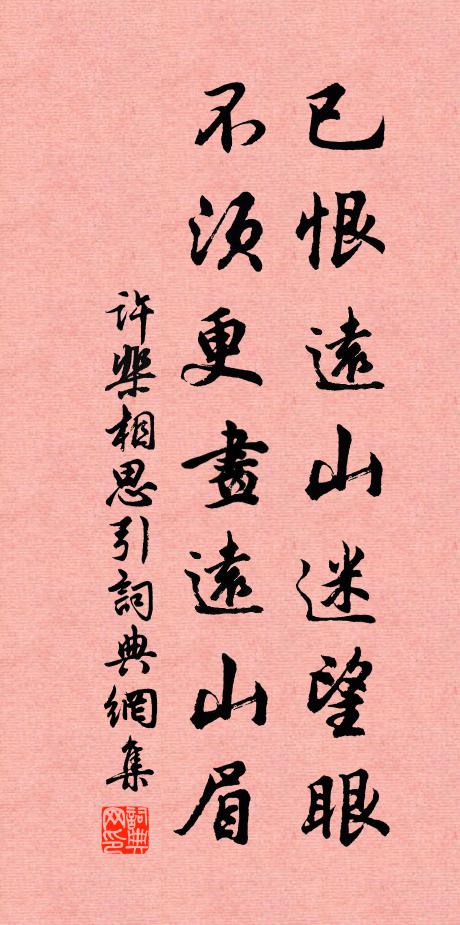 已恨遠山迷望眼
不須更畫遠山眉
許棐相思引詞典網集
詞典网印